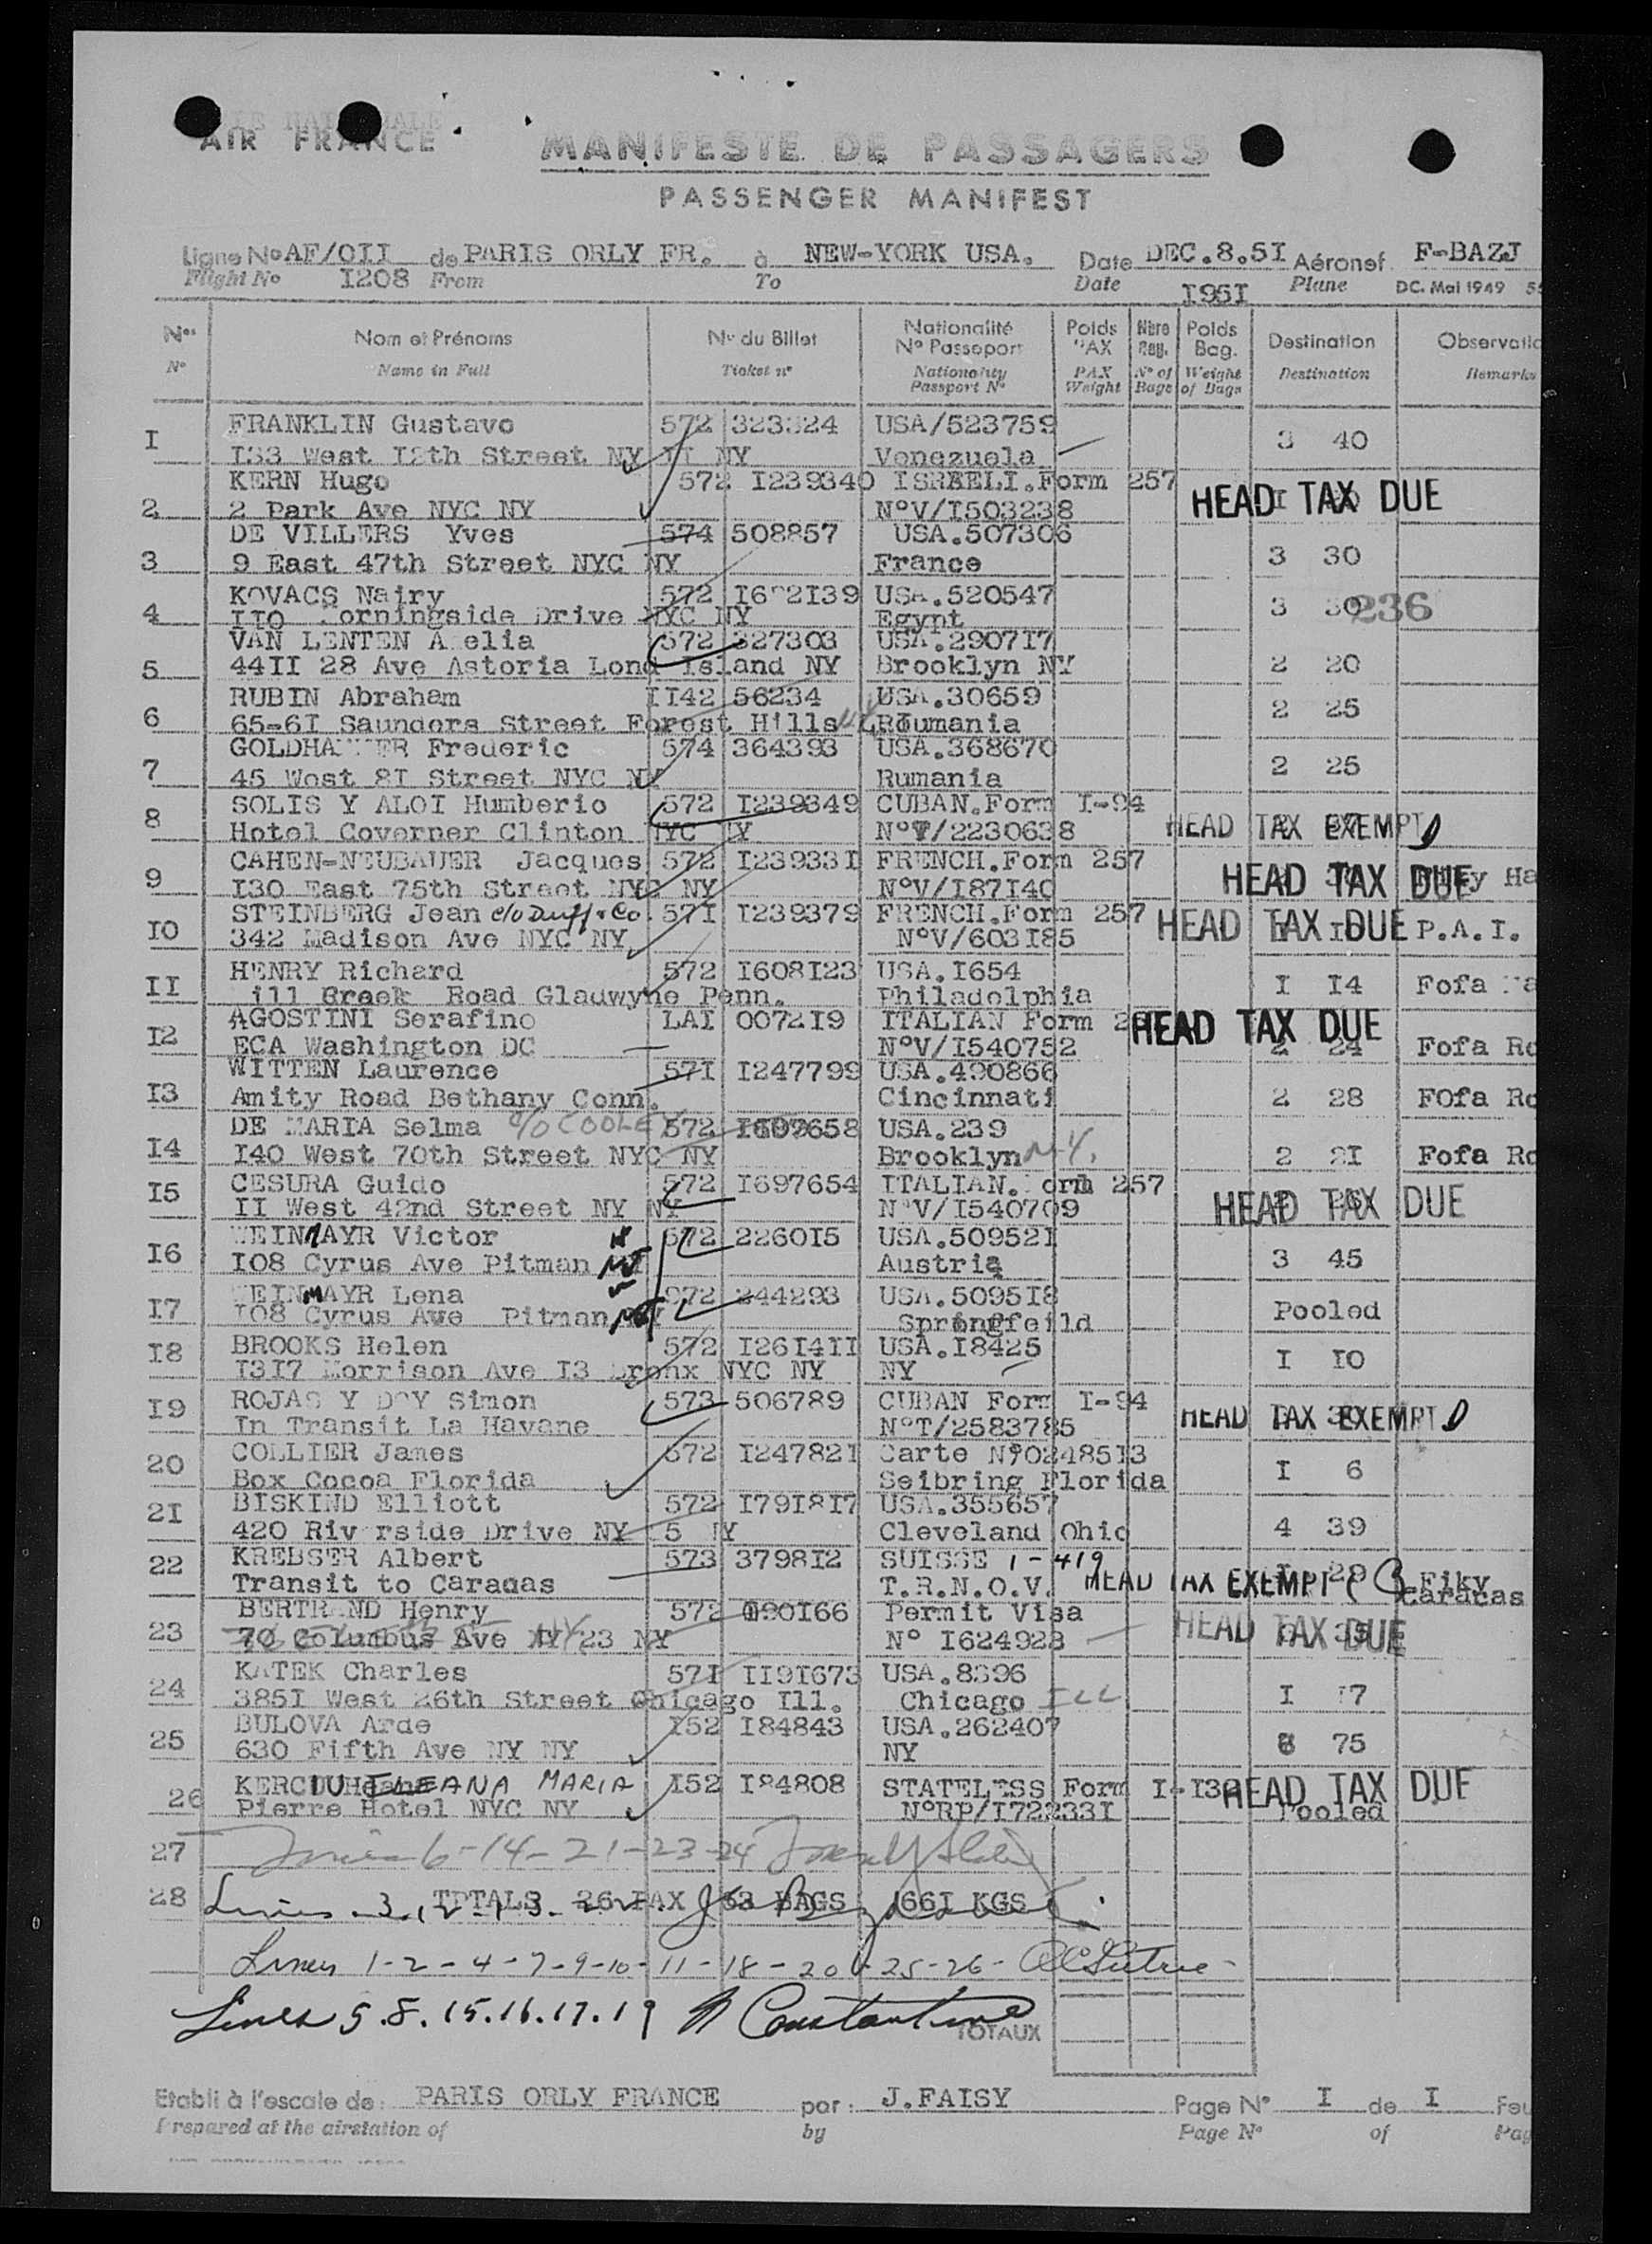 AIR FRANCE
MANIFESTE DE PASSAGERS
PASSENGER MANIFEST
Ligne No AF/OII de PARIS ORLY FR. à NEW-YORK USA. Date DEC.8.5I Aéronef F-BAZJ
Flight No I208 From To Date I95I Plane DC. Mai 1949
Nos Nom et Prénoms No du Billet Nationalité No Passeport Poids PAX Nbre Bag. Poids Bag. Destination
No Name in Full Ticket no Nationality Passport No PAX Weight No of Bags Weight of Bags Destination Remarks
I FRANKLIN Gustavo 572 323324 USA/523759 3 40
I33 West I2th Street NY II NY Venezuela
2 KERN Hugo 572 I239340 ISRAELI.Form 257 HEAD TAX DUE
2 Park Ave NYC NY N°V/I503238
3 DE VILLERS Yves 574 508857 USA.507306 3 30
9 East 47th Street NYC NY France
4 KOVACS Nairy 572 USA.520547 3 30 236
IIO Drive NYC NY Egypt
5 VAN LENTEN 572 327303 USA.2907I7 2 20
44II 28 Ave Astoria Lond Island NY Brooklyn NY
6 RUBIN Abraham II42 56234 USA.30659 2 25
65-6I Saunders Street Forest Hills Roumania
7 Frederic 574 364393 USA.368670 2 25
45 West 8I Street NYC NY Rumania
8 SOLIS Y ALOI Humberio 572 I239349 CUBAN.Form I-94 HEAD TAX EXEMPT
Hotel Governer Clinton NYC NY N°T/2230638
9 CAHEN-NEUBAUER Jacques 572 I23933I FRENCH.Form 257 HEAD TAX DUE
I30 East 75th Street NYC NY N°V/I87I40
IO STEINBERG Jean c/o Duff & Co. 57I I239379 FRENCH.Form 257 HEAD TAX DUE P.A.I.
342 Madison Ave NYC NY N°V/603I85
II HENRY Richard 572 I608I23 USA.I654 I I4 Fofa
ill Creek Road Gladwyne Penn. Philadelphia
I2 AGOSTINI Serafino LAI 0072I9 ITALIAN Form HEAD TAX DUE 2 24 Fofa Ro
ECA Washington DC N°V/I540752
I3 WITTEN Laurence 57I I247799 USA.490866 2 28 FOfa Ro
Amity Road Bethany Conn. Cincinnati
I4 DE MARIA Selma c/o COOLEY 572 USA.239 2 2I Fofa Ro
I40 West 70th Street NYC NY Brooklyn N.Y.
I5 CESURA Guido 572 I697654 ITALIAN. orm 257 HEAD TAX DUE
II West 42nd Street NY NY N°V/I540709
I6 WEINMAYR Victor 572 2260I5 USA.50952I 3 45
I08 Cyrus Ave Pitman NJ Austria
I7 WEINMAYR Lena 972 244293 USA.5095I8 Pooled
I08 Cyrus Ave Pitman NJ Springfeild
I8 BROOKS Helen 572 I26I4II USA.I8425 I IO
I3I7 Morrison Ave I3 Bronx NYC NY NY
I9 ROJAS Y Simon 573 506789 CUBAN Form I-94 HEAD TAX EXEMPT
In Transit La Havane N°T/2583785
20 COLLIER James 572 I24782I Carte N°02485I3 I 6
Box Cocoa Florida Seibring Florida
2I BISKIND Elliott 572 I79I8I7 USA.355657 4 39
420 Riverside Drive NY 25 NY Cleveland Ohio
22 KREBSER Albert 573 3798I2 SUISSE 1-419 HEAD TAX EXEMPT
Transit to Caracas T.R.N.O.V. Caracas
23 BERTRAND Henry 572 090I66 Permit Visa HEAD TAX DUE
70 Columbus Ave NY 23 NY N° I624923
24 KATEK Charles 57I II9I673 USA.8396 I I7
385I West 26th Street Chicago Ill. Chicago ILL
25 BULOVA Arde I52 I84843 USA.262407 8 75
630 Fifth Ave NY NY NY
26 ILEANA MARIA I52 I84808 STATELESS Form I-I3 HEAD TAX DUE
Pierre Hotel NYC NY N°RP/I72233I Pooled
27 6-14-21-23-24
28 TOTALS 26 PAX 53 BAGS 66I KGS
Lines 1-2-4-7-9-10-11-18-20-25-26-
Lines 5.8.15.16.17.19 Constantine
TOTAUX
Etabli à l'escale de: PARIS ORLY FRANCE par: J.FAISY Page No I de I
Prepared at the airstation of by Page No of